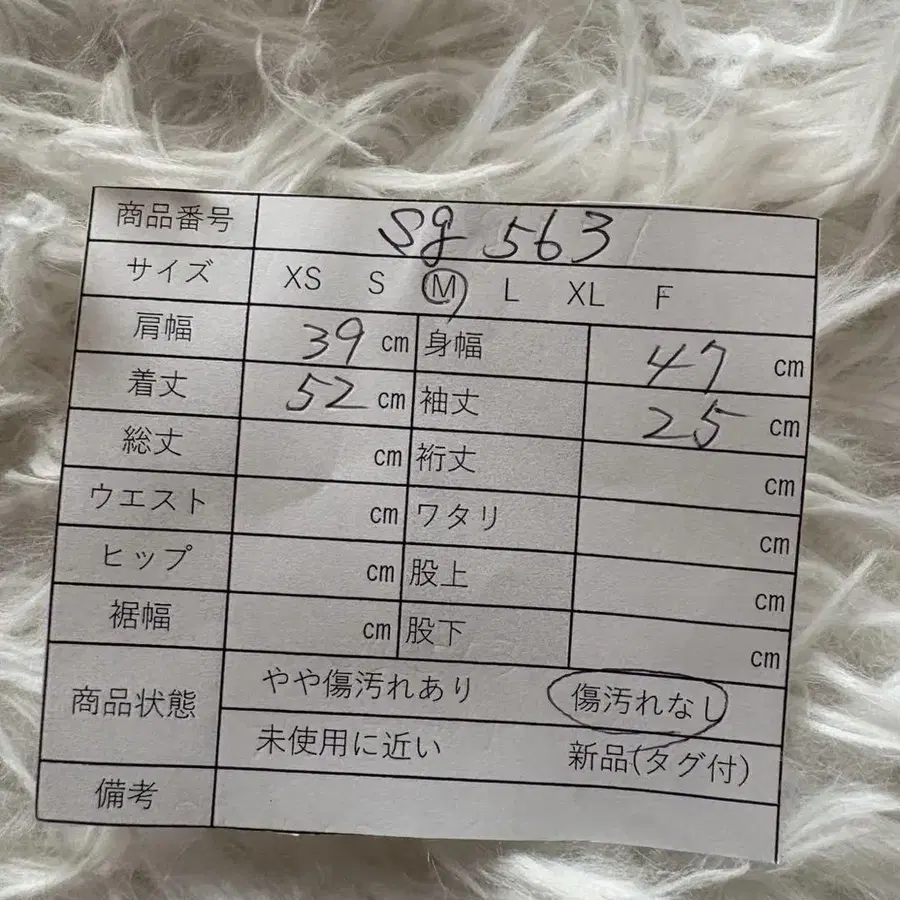 商品番号 sg 563
サイズ XS S M L XL F
肩幅 39 cm 身幅 47 cm
着丈 52 cm 袖丈 25 cm
総丈 cm 裄丈 cm
ウエスト cm ワタリ cm
ヒップ cm 股上 cm
裾幅 cm 股下 cm
商品状態 やや傷汚れあり 傷汚れなし
未使用に近い 新品(タグ付)
備考